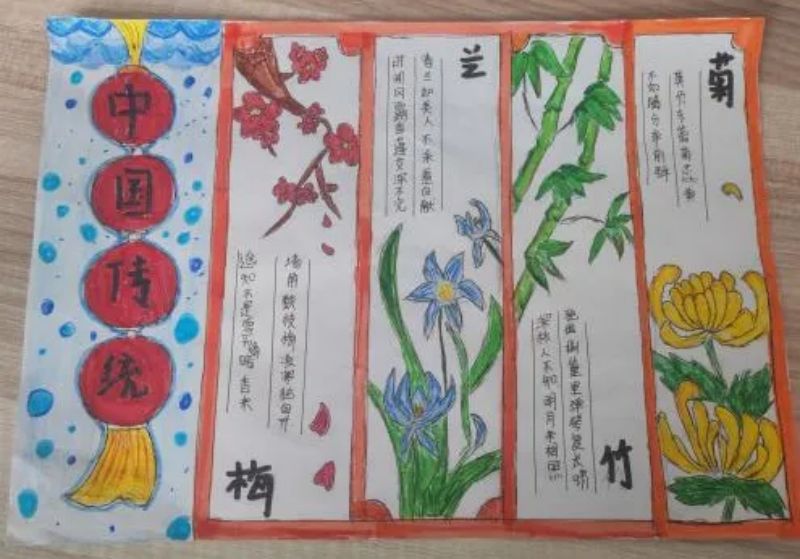 中国传统
墙角数枝梅凌寒独自开
遥知不是雪为有暗香来
梅
兰
春兰如美人不采羞自献
时闻风露香蓬艾深不见
独坐幽篁里弹琴复长啸
深林人不知明月来相照
竹
菊
莫负东篱菊蕊黄
不如随分尊前醉